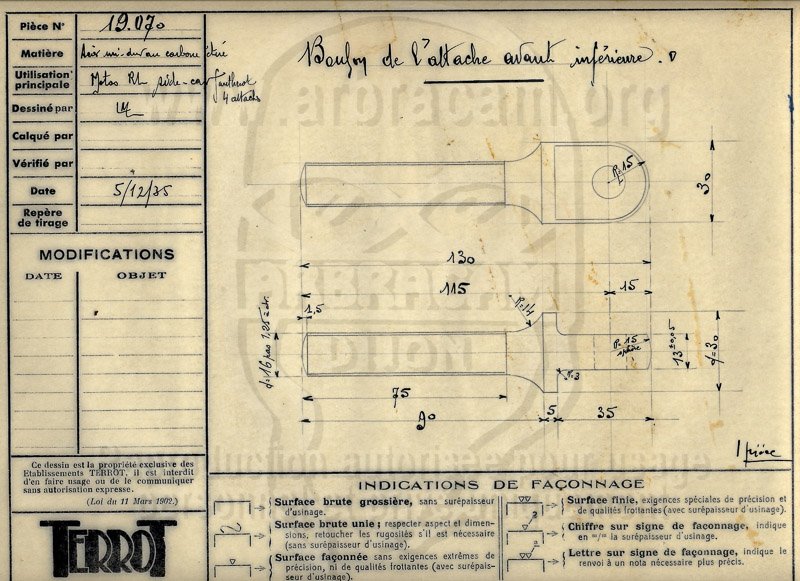 Pièce N° 19.070
Matière Acier mi-dur au carbone étiré
Utilisation principale Motos RL side-car
4 attaches
Dessiné par
Calqué par
Vérifié par
Date 5/12/35
Repère de tirage
MODIFICATIONS
DATE OBJET
Ce dessin est la propriété exclusive des
Etablissements TERROT, il est interdit
d'en faire usage ou de le communiquer
sans autorisation expresse.
(Loi du 11 Mars 1902.)
TERROT
Boulon de l'attache avant inférieure.
R=15
30
130
115
15
1,5
R=14
d=16 pas 1,25
R=15
sphère
13 ±0,05
d=30
R=3
75
90
5
35
1 pièce
INDICATIONS DE FAÇONNAGE
Surface brute grossière, sans surépaisseur
d'usinage.
Surface brute unie; respecter aspect et dimen-
sions, retoucher les rugosités s'il est nécessaire
(sans surépaisseur d'usinage).
Surface façonnée sans exigences extrêmes de
précision, ni de qualités frottantes (avec surépais-
seur d'usinage).
Surface finie, exigences spéciales de précision et
de qualités frottantes (avec surépaisseur d'usinage).
Chiffre sur signe de façonnage, indique
en m/m la surépaisseur d'usinage.
Lettre sur signe de façonnage, indique le
renvoi à un nota nécessaire plus précis.